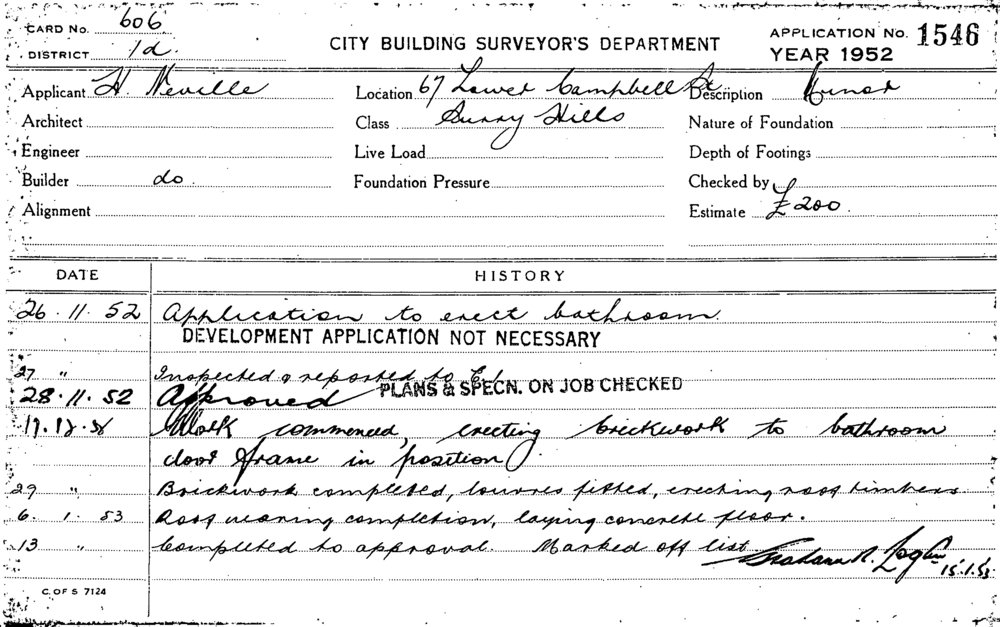 CARD No. 606
DISTRICT 1d.
CITY BUILDING SURVEYOR'S DEPARTMENT
APPLICATION No. 1546
YEAR 1952
Applicant H. Neville Location 67 Lower Campbell St Description Minor
Architect Class Surry Hills Nature of Foundation
Engineer Live Load Depth of Footings
Builder do. Foundation Pressure Checked by
Alignment Estimate £200.
DATE HISTORY
26.11.52 Application to erect bathroom.
DEVELOPMENT APPLICATION NOT NECESSARY
27 " Inspected & reported to
PLANS & SPECN. ON JOB CHECKED
28.11.52 Approved
Work commenced, erecting brickwork to bathroom
door frame in position.
29 " Brickwork completed, louvres fitted, erecting roof timbers
6. 1. 53 Roof nearing completion, laying concrete floor.
13 " Completed to approval. Marked off list
15.1.53
C. OF S 7124